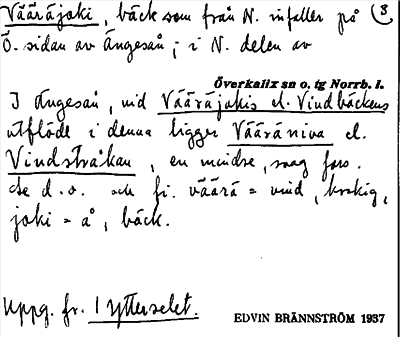 Vääräjoki, bäck som från N. infaller på (3
Ö. sidan av Ängesån; i N. delen av
Överkalix sn o. tg Norrb. l.
I Ängesån, vid Vääräjokis el. Vindbäckens
utflöde i denna ligger Vääräniva el.
Vindstråkan, en mindre, svag fors.
Se d.o. och fi. väärä = vind, krokig,
joki = å, bäck.
Uppg. fr. 1 Ytterselet.
EDVIN BRÄNNSTRÖM 1937